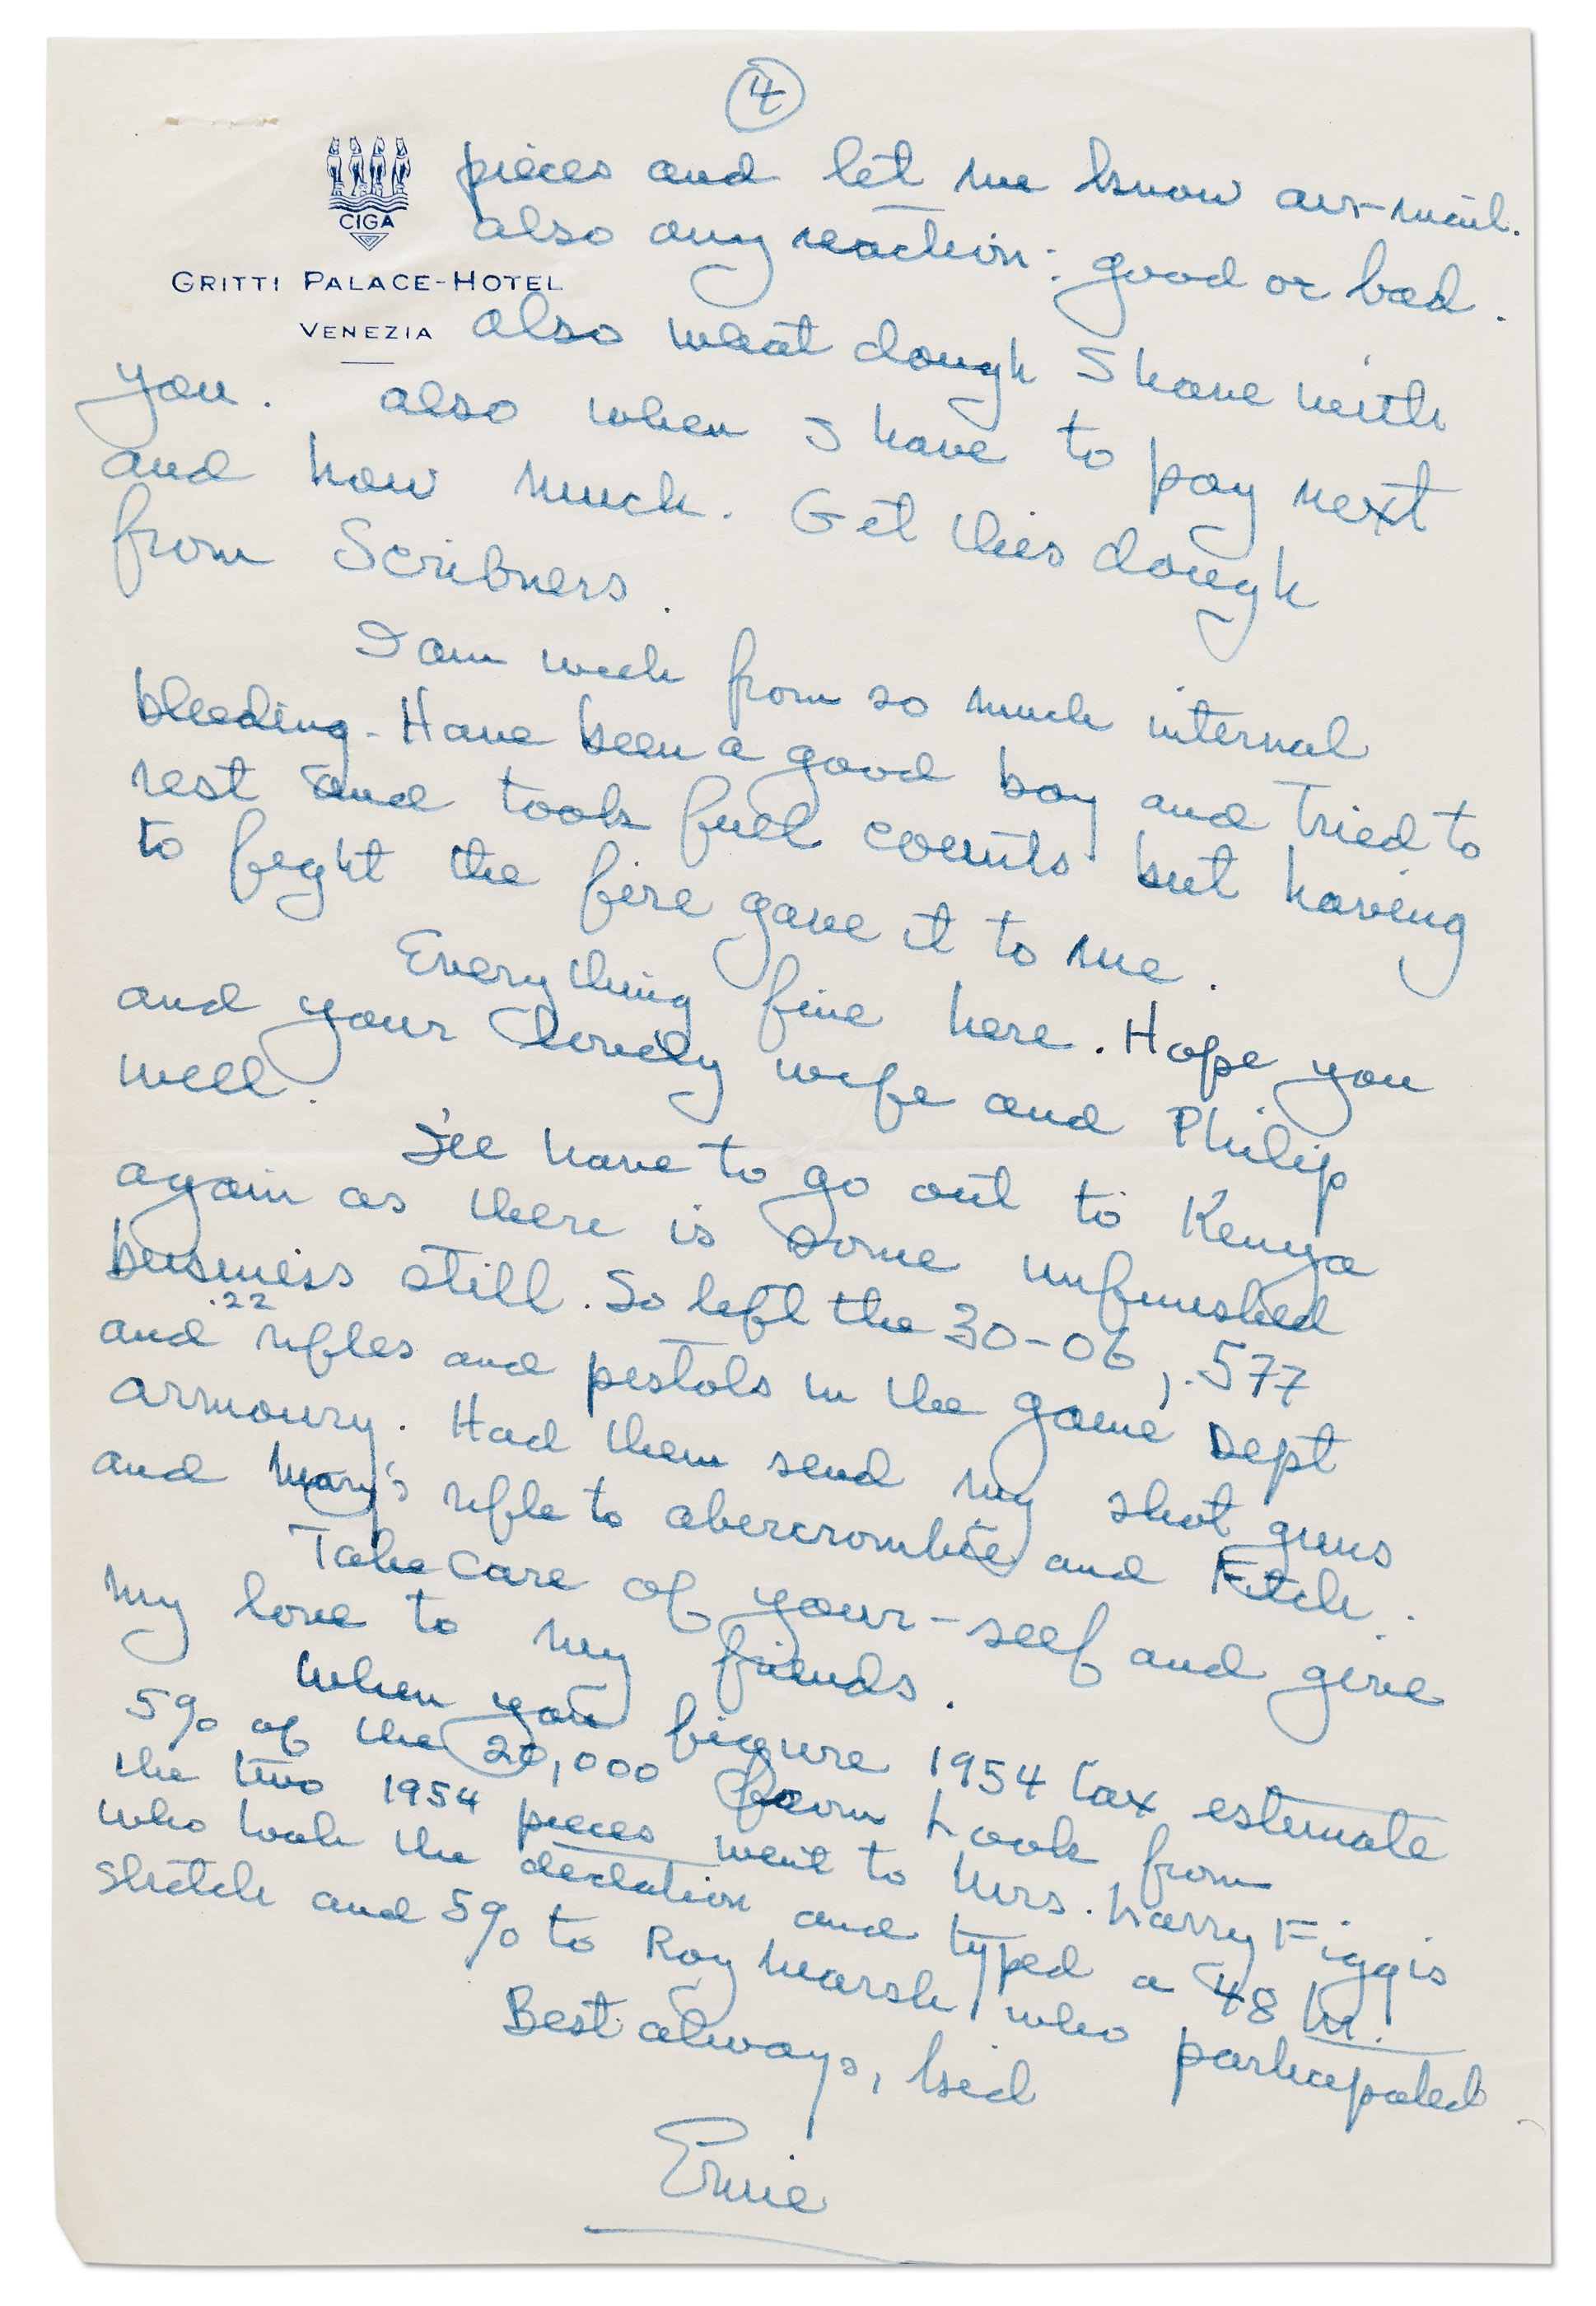 4
pieces and let me know air-mail.
CIGA
also any reaction: good or bad.
GRITTI PALACE-HOTEL
VENEZIA
also what dough I have with
you. also when I have to pay next
and how much. Get this dough
from Scribners.
I am weak from so much internal
bleeding. Have been a good boy and tried to
rest and took full counts but having
to fight the fire gave it to me.
Everything fine here. Hope you
and your lovely wife and Philip
well.
I'll have to go out to Kenya
again as there is some unfinished
business still. So left the 30-06, .577
.22
and rifles and pistols in the game Dept
armoury. Had them send my shot guns
and Mary's rifle to abercrombie and Fitch.
Take care of your-self and give
my love to my friends.
When you figure 1954 tax estimate
5% of the 20,000 from Look from
the two 1954 pieces went to Mrs. Harry Figgis
who took the dictation and typed a 48 hr.
stretch and 5% to Roy Marsh who participated.
Best always, kid
Ernie